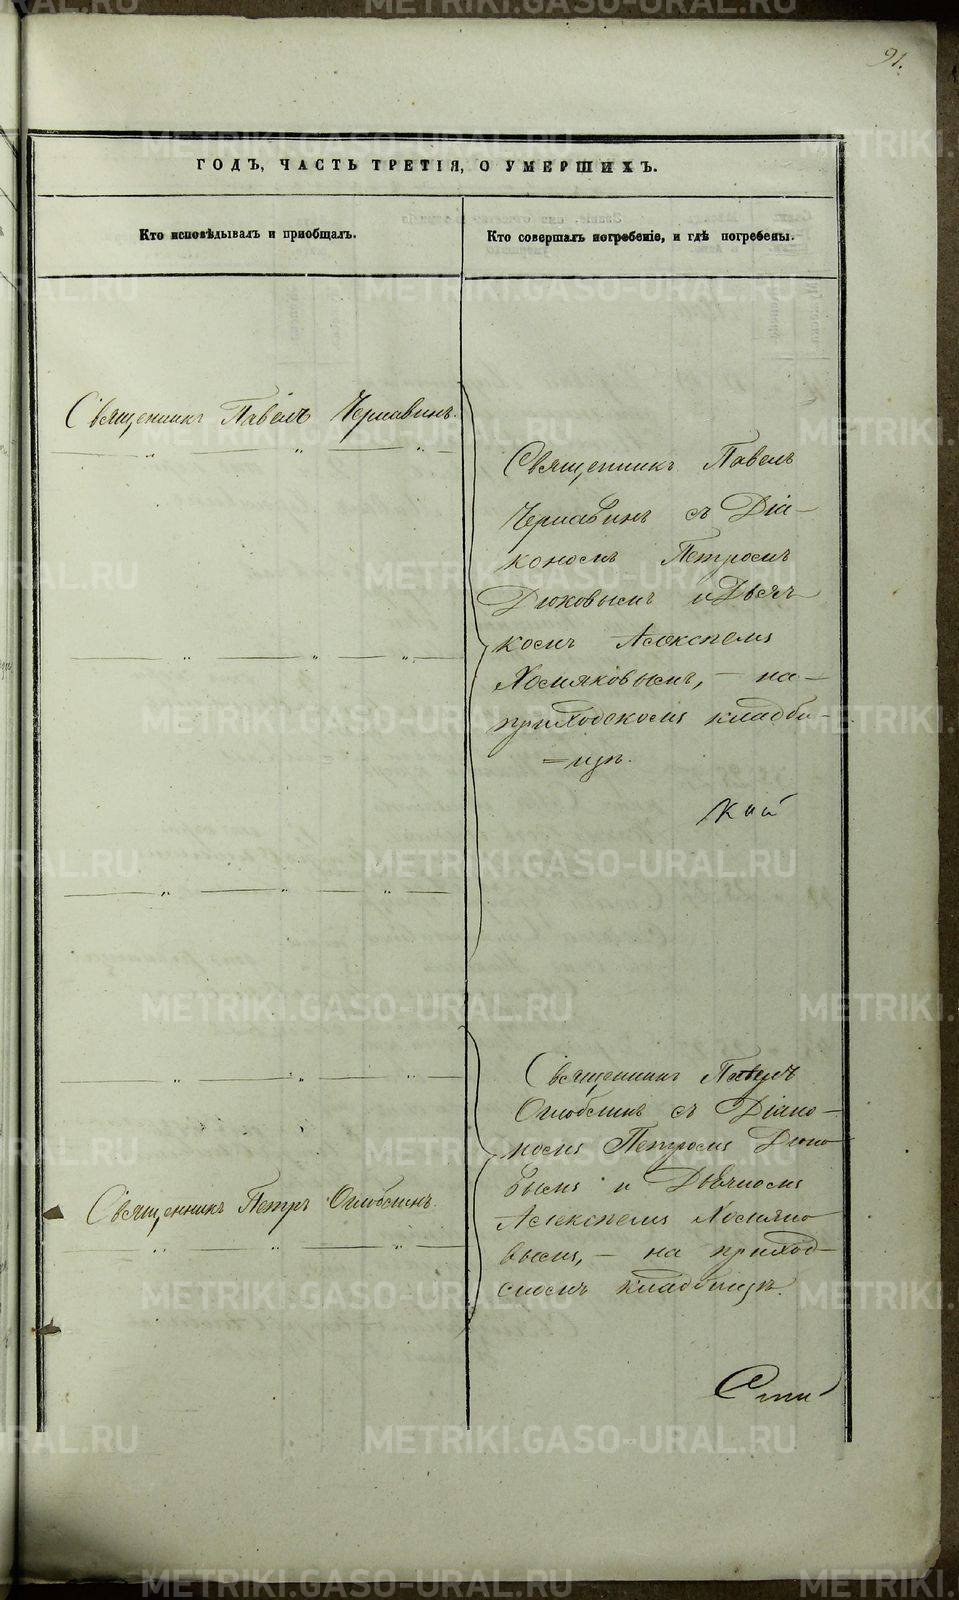 91.
ГОДЪ, ЧАСТЬ ТРЕТІЯ, О УМЕРШИХЪ.
Кто исповѣдывалъ и пріобщалъ.
Кто совершалъ погребеніе, и гдѣ погребены.
Священникъ Павелъ Чернавинъ.
Священникъ Павелъ
Чернавинъ съ Діа-
кономъ Петромъ
Дюковымъ и Дьяч
комъ Алексѣемъ
Хомяковымъ, — на
приходскомъ кладби-
щѣ.
Священникъ Петръ
Оглоблинъ съ Діако-
номъ Петромъ Дюко
вымъ и Дьячкомъ
Алексѣемъ Хомяко
вымъ, — на приход-
скомъ кладбищѣ.
Священникъ Петръ Оглоблинъ.
METRIKI.GASO-URAL.RU